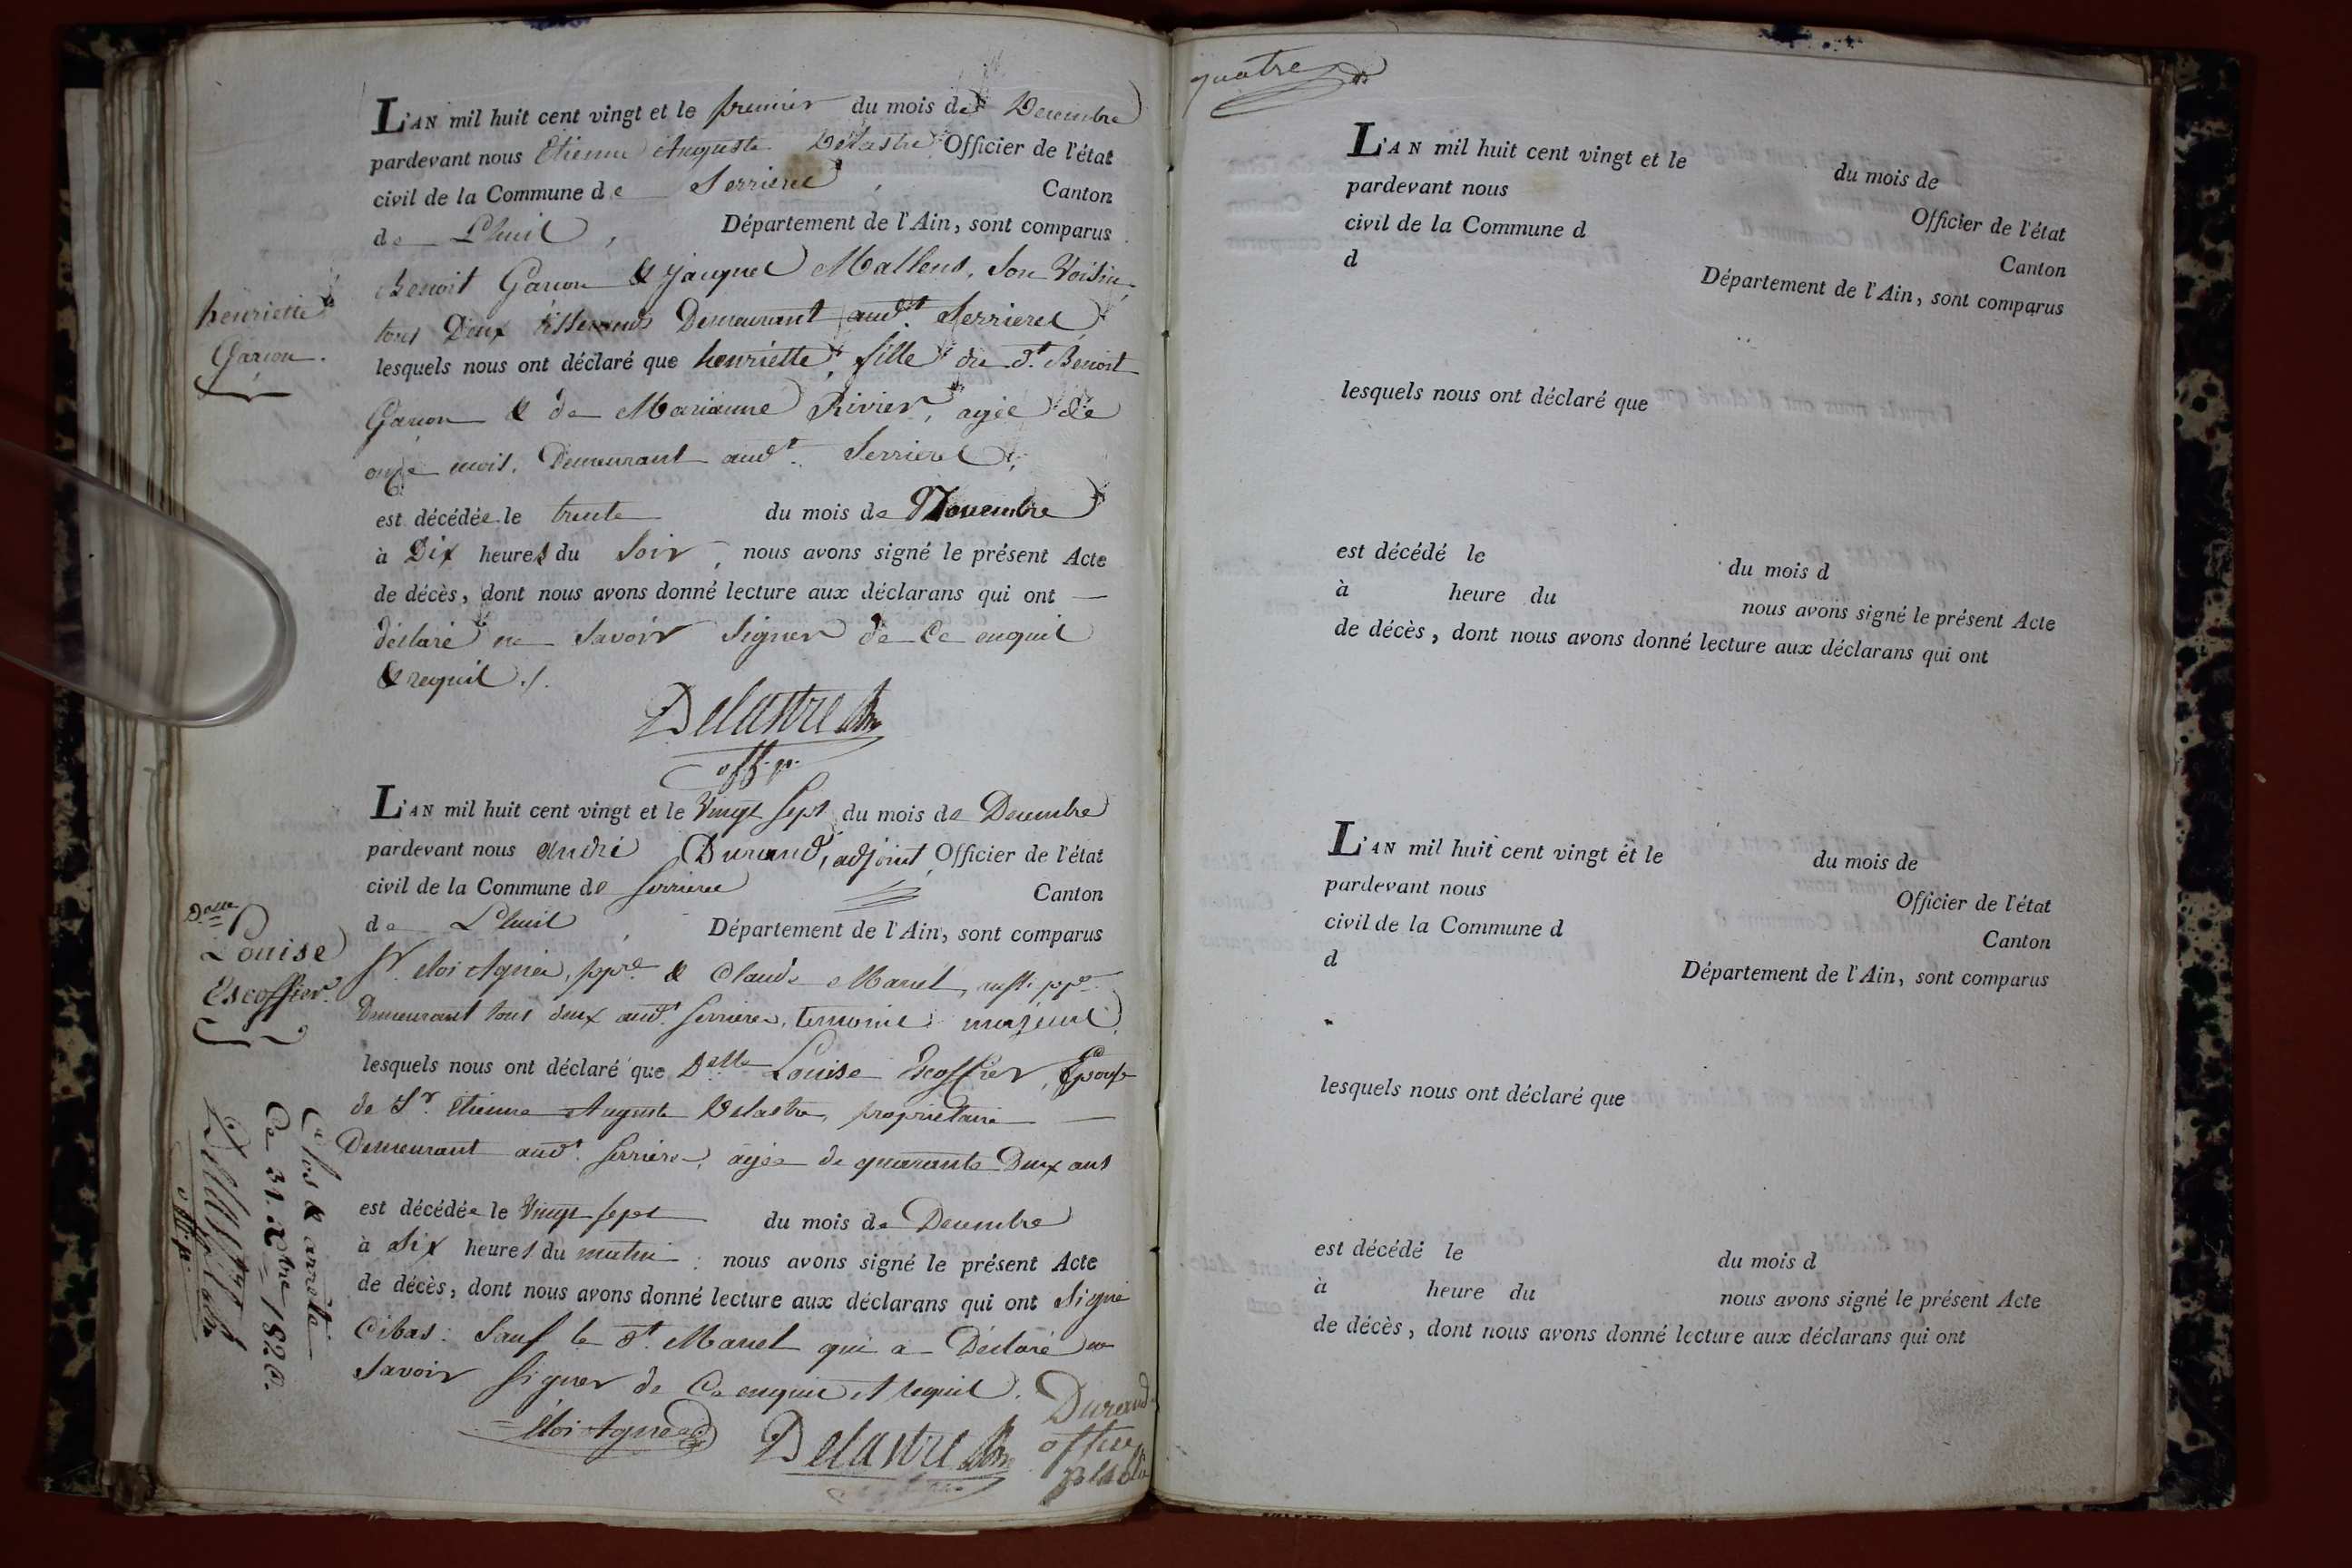 L'AN mil huit cent vingt et le premier du mois de Decembre
pardevant nous Etienne Auguste Delastre Officier de l'état
civil de la Commune de Serrieres, Canton
de L'huis, Département de l'Ain, sont comparus
Benoit Garçon & Jacques Mallens, son Voisin,
tous Deux tisserands Demeurant aud.t Serrieres
lesquels nous ont déclaré que henriette, fille du d.t Benoit
Garçon & de Marianne Rivier, agée de
onze mois, Demeurant aud.t Serrieres,
est décédée le trente du mois de Novembre
à Dix heures du Soir, nous avons signé le présent Acte
de décès, dont nous avons donné lecture aux déclarans qui ont
déclaré ne Savoir Signer de Ce enquis
& requis ./.
Delastre
off. p.
henriette
Garçon.
L'AN mil huit cent vingt et le Vingt Sept du mois de Decembre
pardevant nous André Durand, adjoint, Officier de l'état
civil de la Commune de Serrieres Canton
de L'huis, Département de l'Ain, sont comparus
Sr. Eloi Agnier, pp.re & Claude Marcel,
Demeurant tous deux aud.t Serrieres, temoins majeurs
lesquels nous ont déclaré que Delle Louise Escoffier, Epouse
de Sr. Etienne Auguste Delastre, propriétaire
Demeurant aud.t Serrieres, agée de quarante Deux ans
est décédée le Vingt Sept du mois de Decembre
à Six heures du matin; nous avons signé le présent Acte
de décès, dont nous avons donné lecture aux déclarans qui ont Signé
Cibas: Sauf le d.t Marcel qui a Déclaré ne
Savoir Signer de Ce enquis et requis.
Eloi Agnier
Delastre
Durand
Dame
Louise
Escoffier.
Clos & arrêté
Ce 31. Xbre 1820.
Delastre
off. p.
quatre
L'AN mil huit cent vingt et le du mois de
pardevant nous Officier de l'état
civil de la Commune d Canton
d Département de l'Ain, sont comparus
lesquels nous ont déclaré que
est décédé le du mois d
à heure du nous avons signé le présent Acte
de décès, dont nous avons donné lecture aux déclarans qui ont
L'AN mil huit cent vingt et le du mois de
pardevant nous Officier de l'état
civil de la Commune d Canton
d Département de l'Ain, sont comparus
lesquels nous ont déclaré que
est décédé le du mois d
à heure du nous avons signé le présent Acte
de décès, dont nous avons donné lecture aux déclarans qui ont